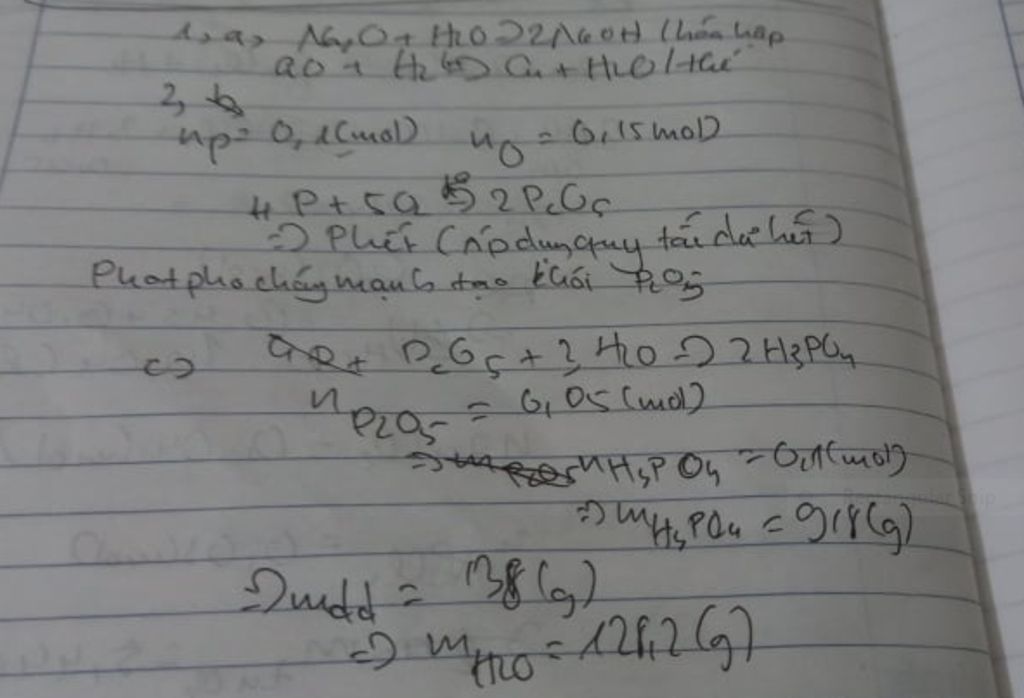 1, a, Na2O + H2O => 2NaOH / hóa hợp
CuO + H2 => Cu + H2O / thế
2,
nP = 0,1(mol) nO = 0,15 mol
4P + 5O2 => 2P2O5
=> P hết (Áp dụng quy tắc dư hết)
Phatpho cháy mạnh tạo khói P2O5
c => P2O5 + 3 H2O => 2H3PO4
nP2O5 = 0,05 (mol)
=> nH3PO4 = 0,1(mol)
=> mH3PO4 = 9,8(g)
=> mdd = 138 (g)
=> mH2O = 128,2 (g)